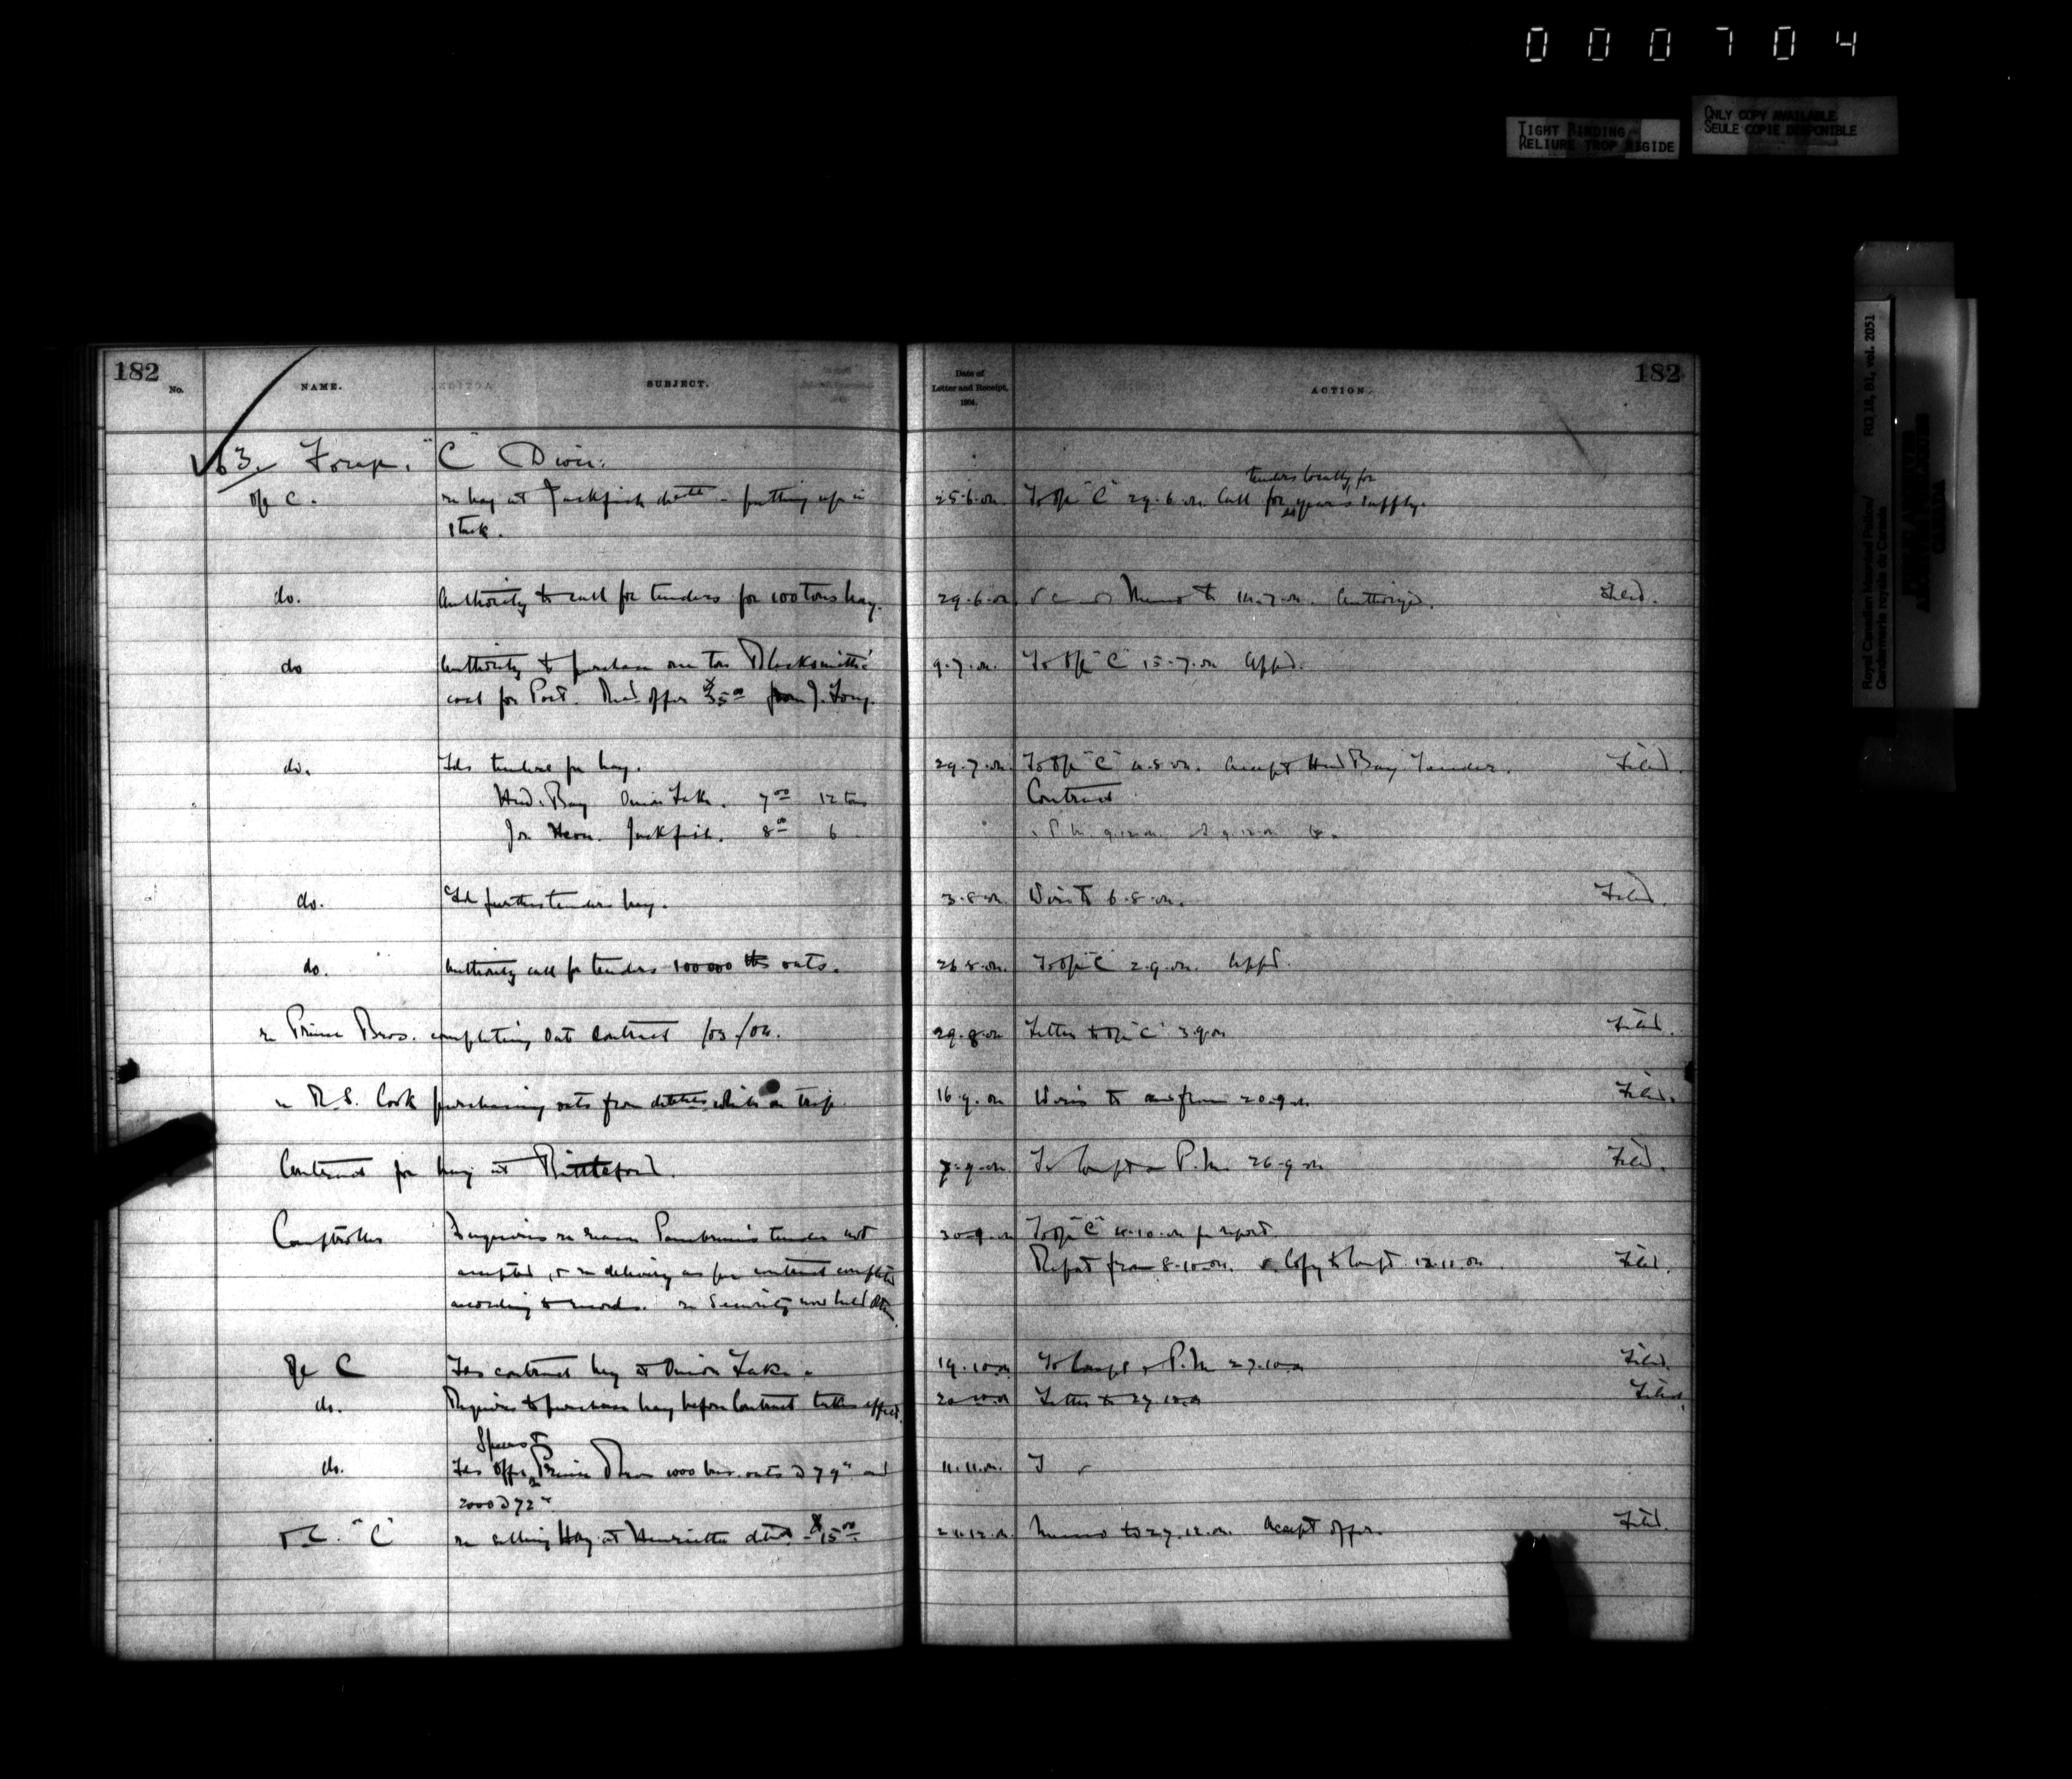 000704
TIGHT BINDING
RELIURE TROP RIGIDE
ONLY COPY AVAILABLE
SEULE COPIE DISPONIBLE
Royal Canadian Mounted Police/
Gendarmerie royale du Canada
RG 18, B1, vol. 2051
182
No.
NAME.
SUBJECT.
Date of
Letter and Receipt,
1904.
ACTION.
182
63. Forage. "C" Divn:
Ofc C. re hay at Jackfish dett - putting up in 25.6.04. To Ofc "C" 29.6.04. Call for tenders locally for year's supply.
stack.
do. Authority to call for tenders for 100 tons hay. 29.6.04. Memo to 14.7.04. Authorized. Filed.
do Authority to purchase one ton Blacksmiths' 9.7.04. To Ofc "C" 15.7.04 Appd.
coal for Post. Recd. offer $35.00 from J. Long.
do. Fds tenders for hay. 29.7.04. To Ofc "C" 4.8.04. Accept Hud Bay Tender. Filed.
Hud. Bay Onion Lake. 7.00 12 tons Contract
Jackfish. 8.00 6
do. Fd further tenders hay. 3.8.04. Wire to 6.8.04. Filed.
do. Authority call for tenders 100000 lbs oats. 26.8.04. To Ofc "C" 2.9.04. Appd.
re Prince Bros. completing Oats Contract /03./04. 29.8.04 Letter to Ofc "C" 3.9.04 Filed.
re R.S. Cook purchasing oats from detts. while on trip. 16.9.04 Wires to and from 20.9.04. Filed.
Contract for hay at Battleford. 7.9.04. To Compt P.M. 26.9.04 Filed.
Comptroller Inquiries re reason Pambrun's tender not 30.9.04 To Ofc "C" 4.10.04 for report.
accepted, & re delivery as per contract completed Report from 8.10.04. Copy to Compt. 12.11.04. Filed.
according to records. re Security now held
Ofc C Fds contract hay at Onion Lake. 19.10.04 To Compt P.M. 27.10.04 Filed.
do. Requires to purchase hay before Contract takes effect. 20.10.04 Letter to 27.10.04 Filed.
do. Fds Offer Prince Bros 1000 bus. oats @ 79c and 11.11.04.
2000 @ 72c
"C" re selling Hay at Henrietta dett - $15.00 24.12.04. Memo to 27.12.04. Accept offer. Filed.